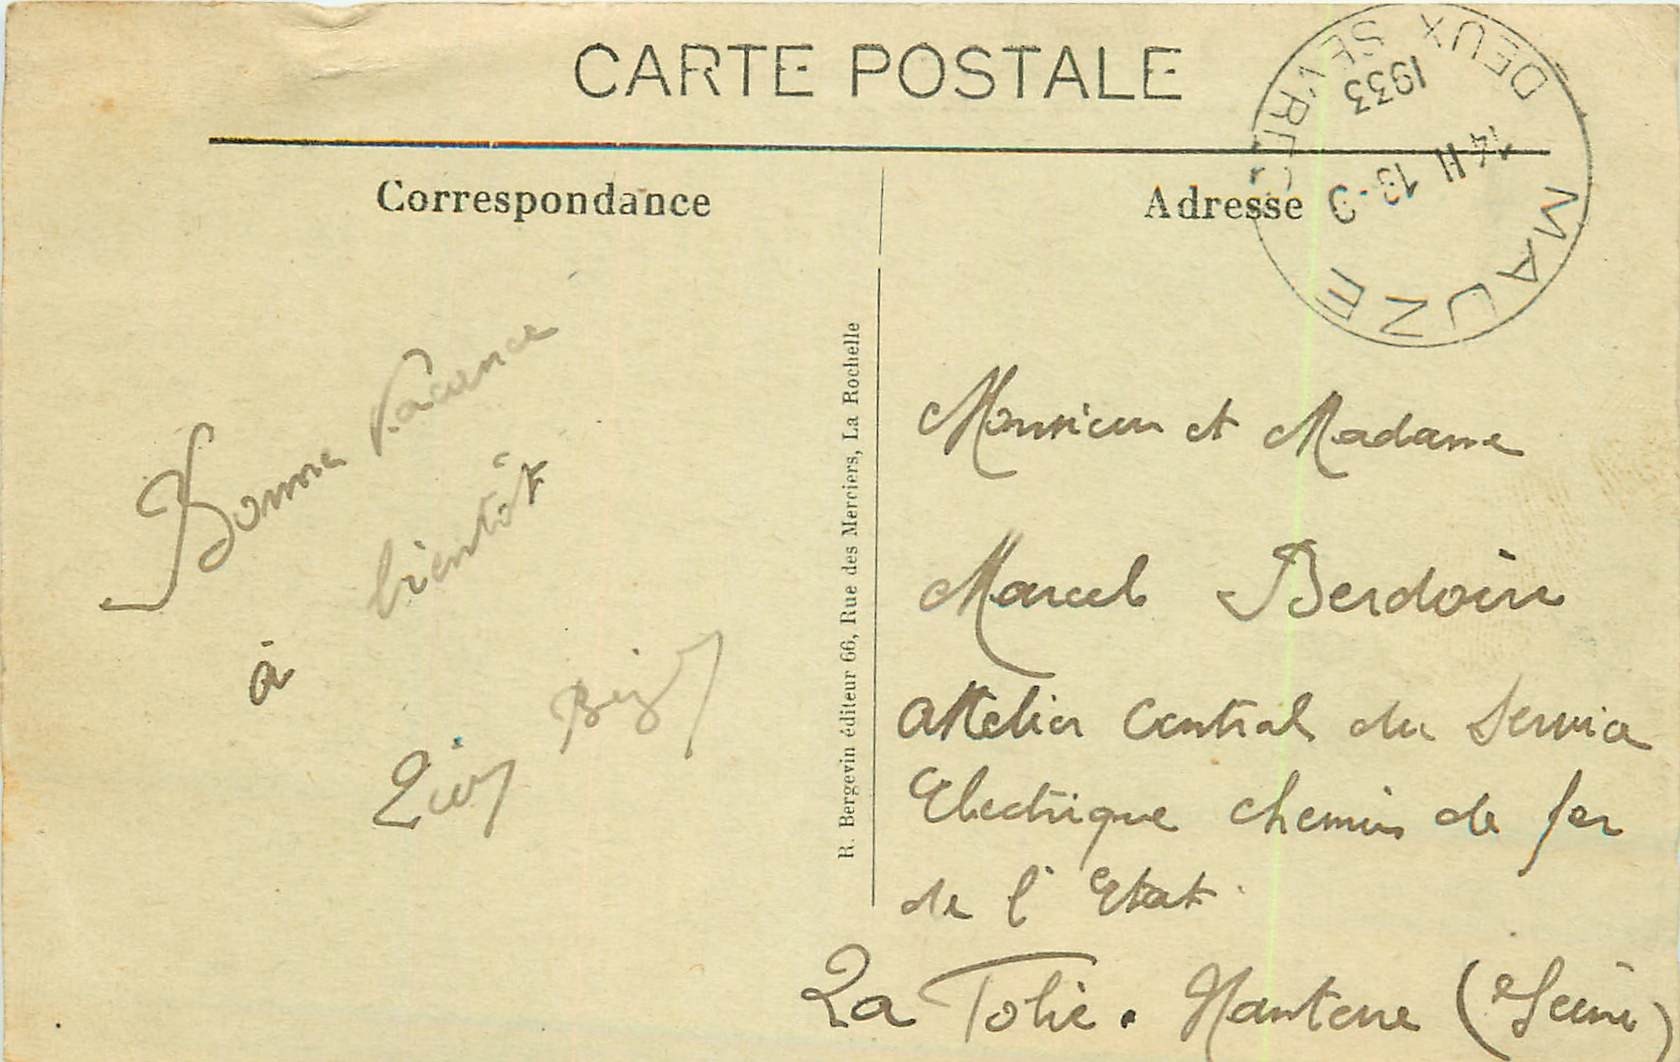 CARTE POSTALE
Correspondance
Adresse
MAUZE
DEUX SEVRES
14 H 13 - 9
1933
Bonne Vacance
à bientôt
R. Bergevin éditeur 66, Rue des Merciers, La Rochelle
Monsieur et Madame
Marcel Berdoin
Attelier Central du Service
Electrique chemin de fer
de l'Etat
La Folie. Nanterre (Seine)